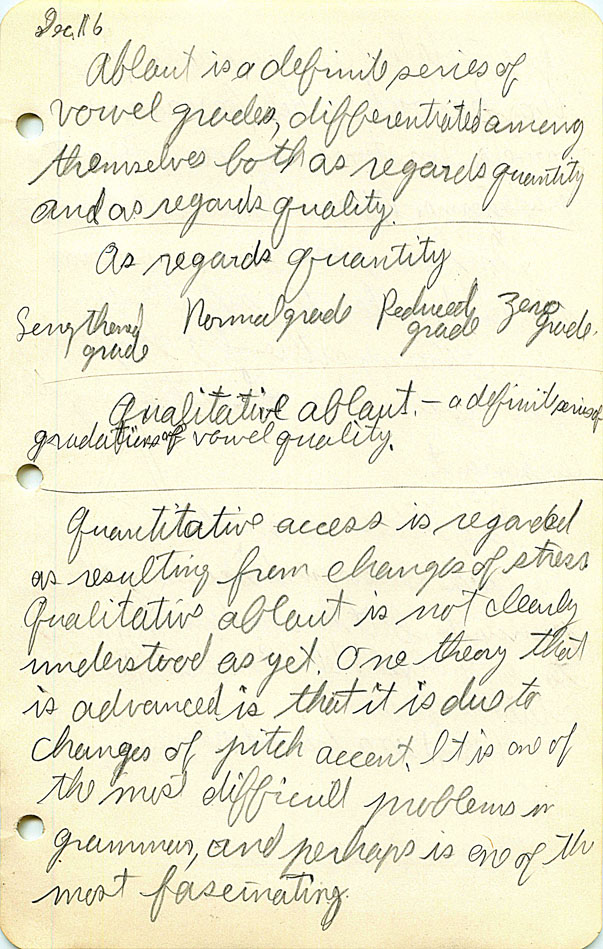 Dec. 16
Ablaut is a definite series of
vowel grades, differentiated among
themselves both as regards quantity
and as regards quality.
As regards quantity
Lengthened Normal grade Reduced Zero
grade grade grade.
Qualitative ablaut. – a definite series of
gradations of vowel quality.
Quantitative access is regarded
as resulting from changes of stress
Qualitative ablaut is not clearly
understood as yet. One theory that
is advanced is that it is due to
changes of pitch accent. It is one of
the most difficult problems in
grammar, and perhaps is one of the
most fascinating.